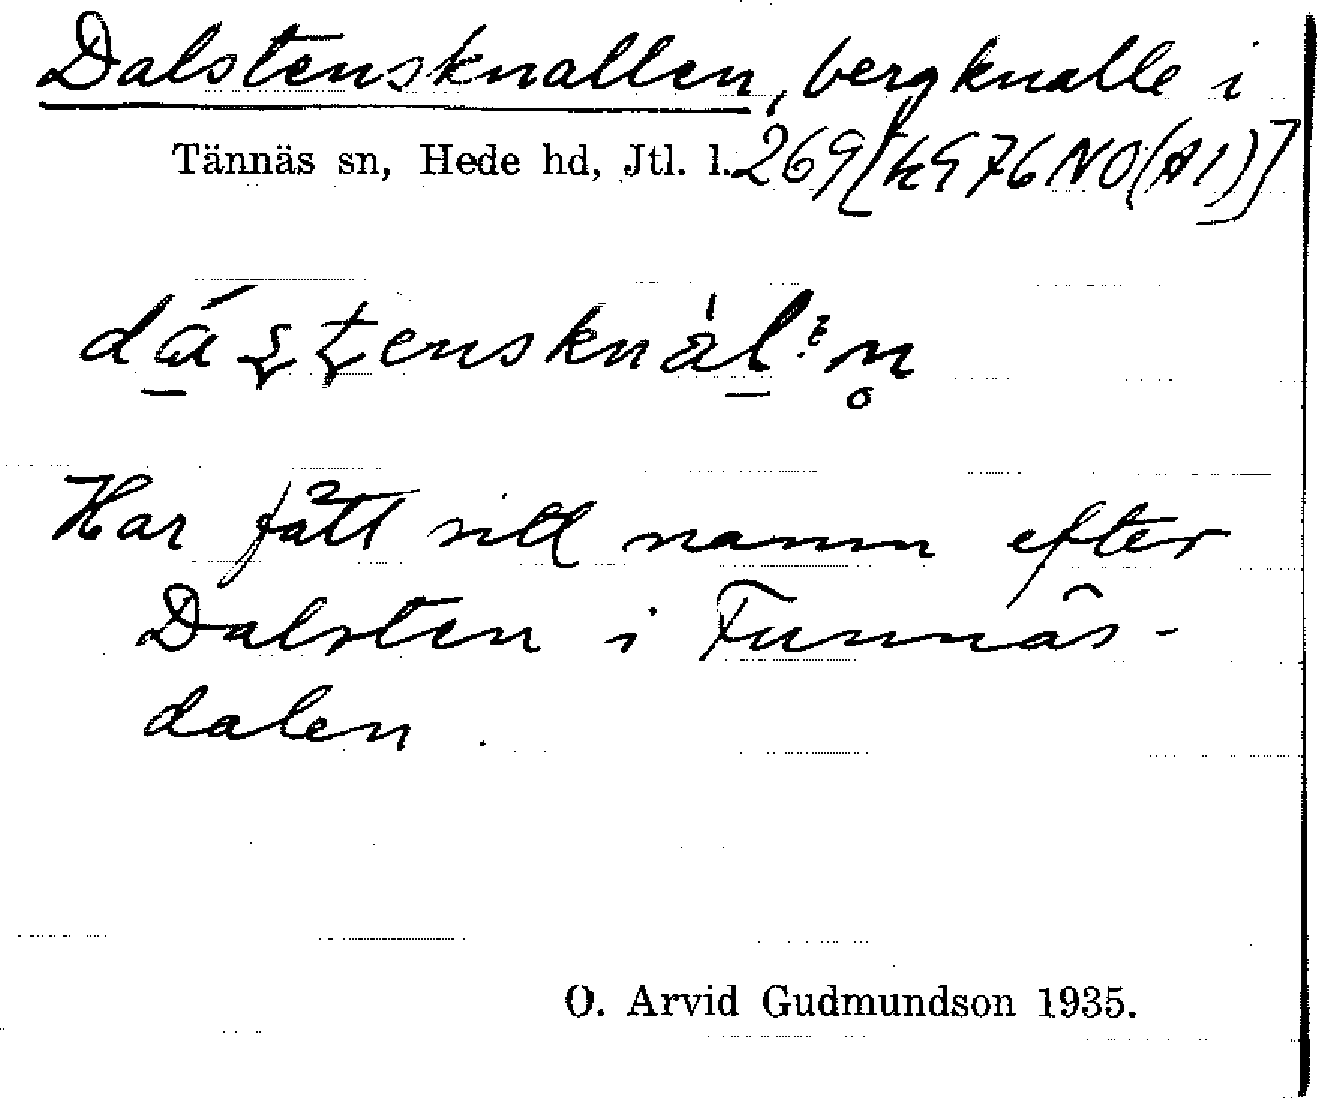 Dalstensknallen, bergknalle i
Tännäs sn, Hede hd, Jtl. l. 269 [kg 76 NO(A1)]
Har fått sitt namn efter
Dalsten i Funnäs-
dalen.
O. Arvid Gudmundson 1935.